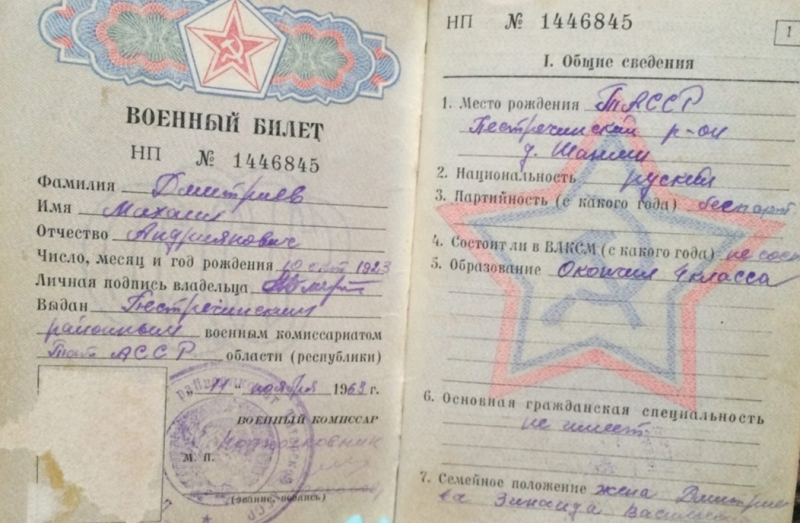 ВОЕННЫЙ БИЛЕТ
НП № 1446845
Фамилия Дмитриев
Имя Михаил
Отчество Андриянович
Число, месяц и год рождения 10 окт 1923
Личная подпись владельца
Выдан Пестречинским
районным военным комиссариатом
Тат АССР области (республики)
11 ноября 1963 г.
ВОЕННЫЙ КОМИССАР
подполковник
М. П.
(звание, подпись)
НП № 1446845
1
I. Общие сведения
1. Место рождения ТАССР
Пестречинский р-он
д. Шигали
2. Национальность руский
3. Партийность (с какого года) беспарт
4. Состоит ли в ВЛКСМ (с какого года) не сост
5. Образование Окончил 4 класса
6. Основная гражданская специальность
не имеет
7. Семейное положение жена Дмитрие
ва Зинаида Василь